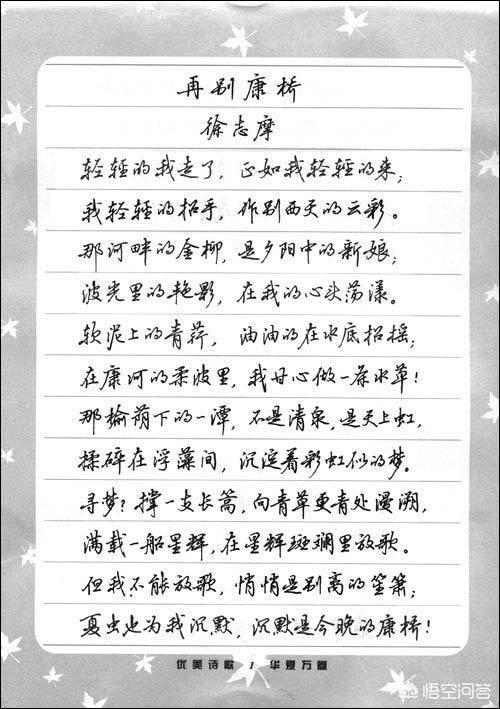 再别康桥
徐志摩
轻轻的我走了，正如我轻轻的来；
我轻轻的招手，作别西天的云彩。
那河畔的金柳，是夕阳中的新娘；
波光里的艳影，在我的心头荡漾。
软泥上的青荇，油油的在水底招摇；
在康河的柔波里，我甘心做一条水草！
那榆荫下的一潭，不是清泉，是天上虹，
揉碎在浮藻间，沉淀着彩虹似的梦。
寻梦？撑一支长篙，向青草更青处漫溯，
满载一船星辉，在星辉斑斓里放歌。
但我不能放歌，悄悄是别离的笙箫；
夏虫也为我沉默，沉默是今晚的康桥！
优美诗歌 / 华夏万卷
悟空问答